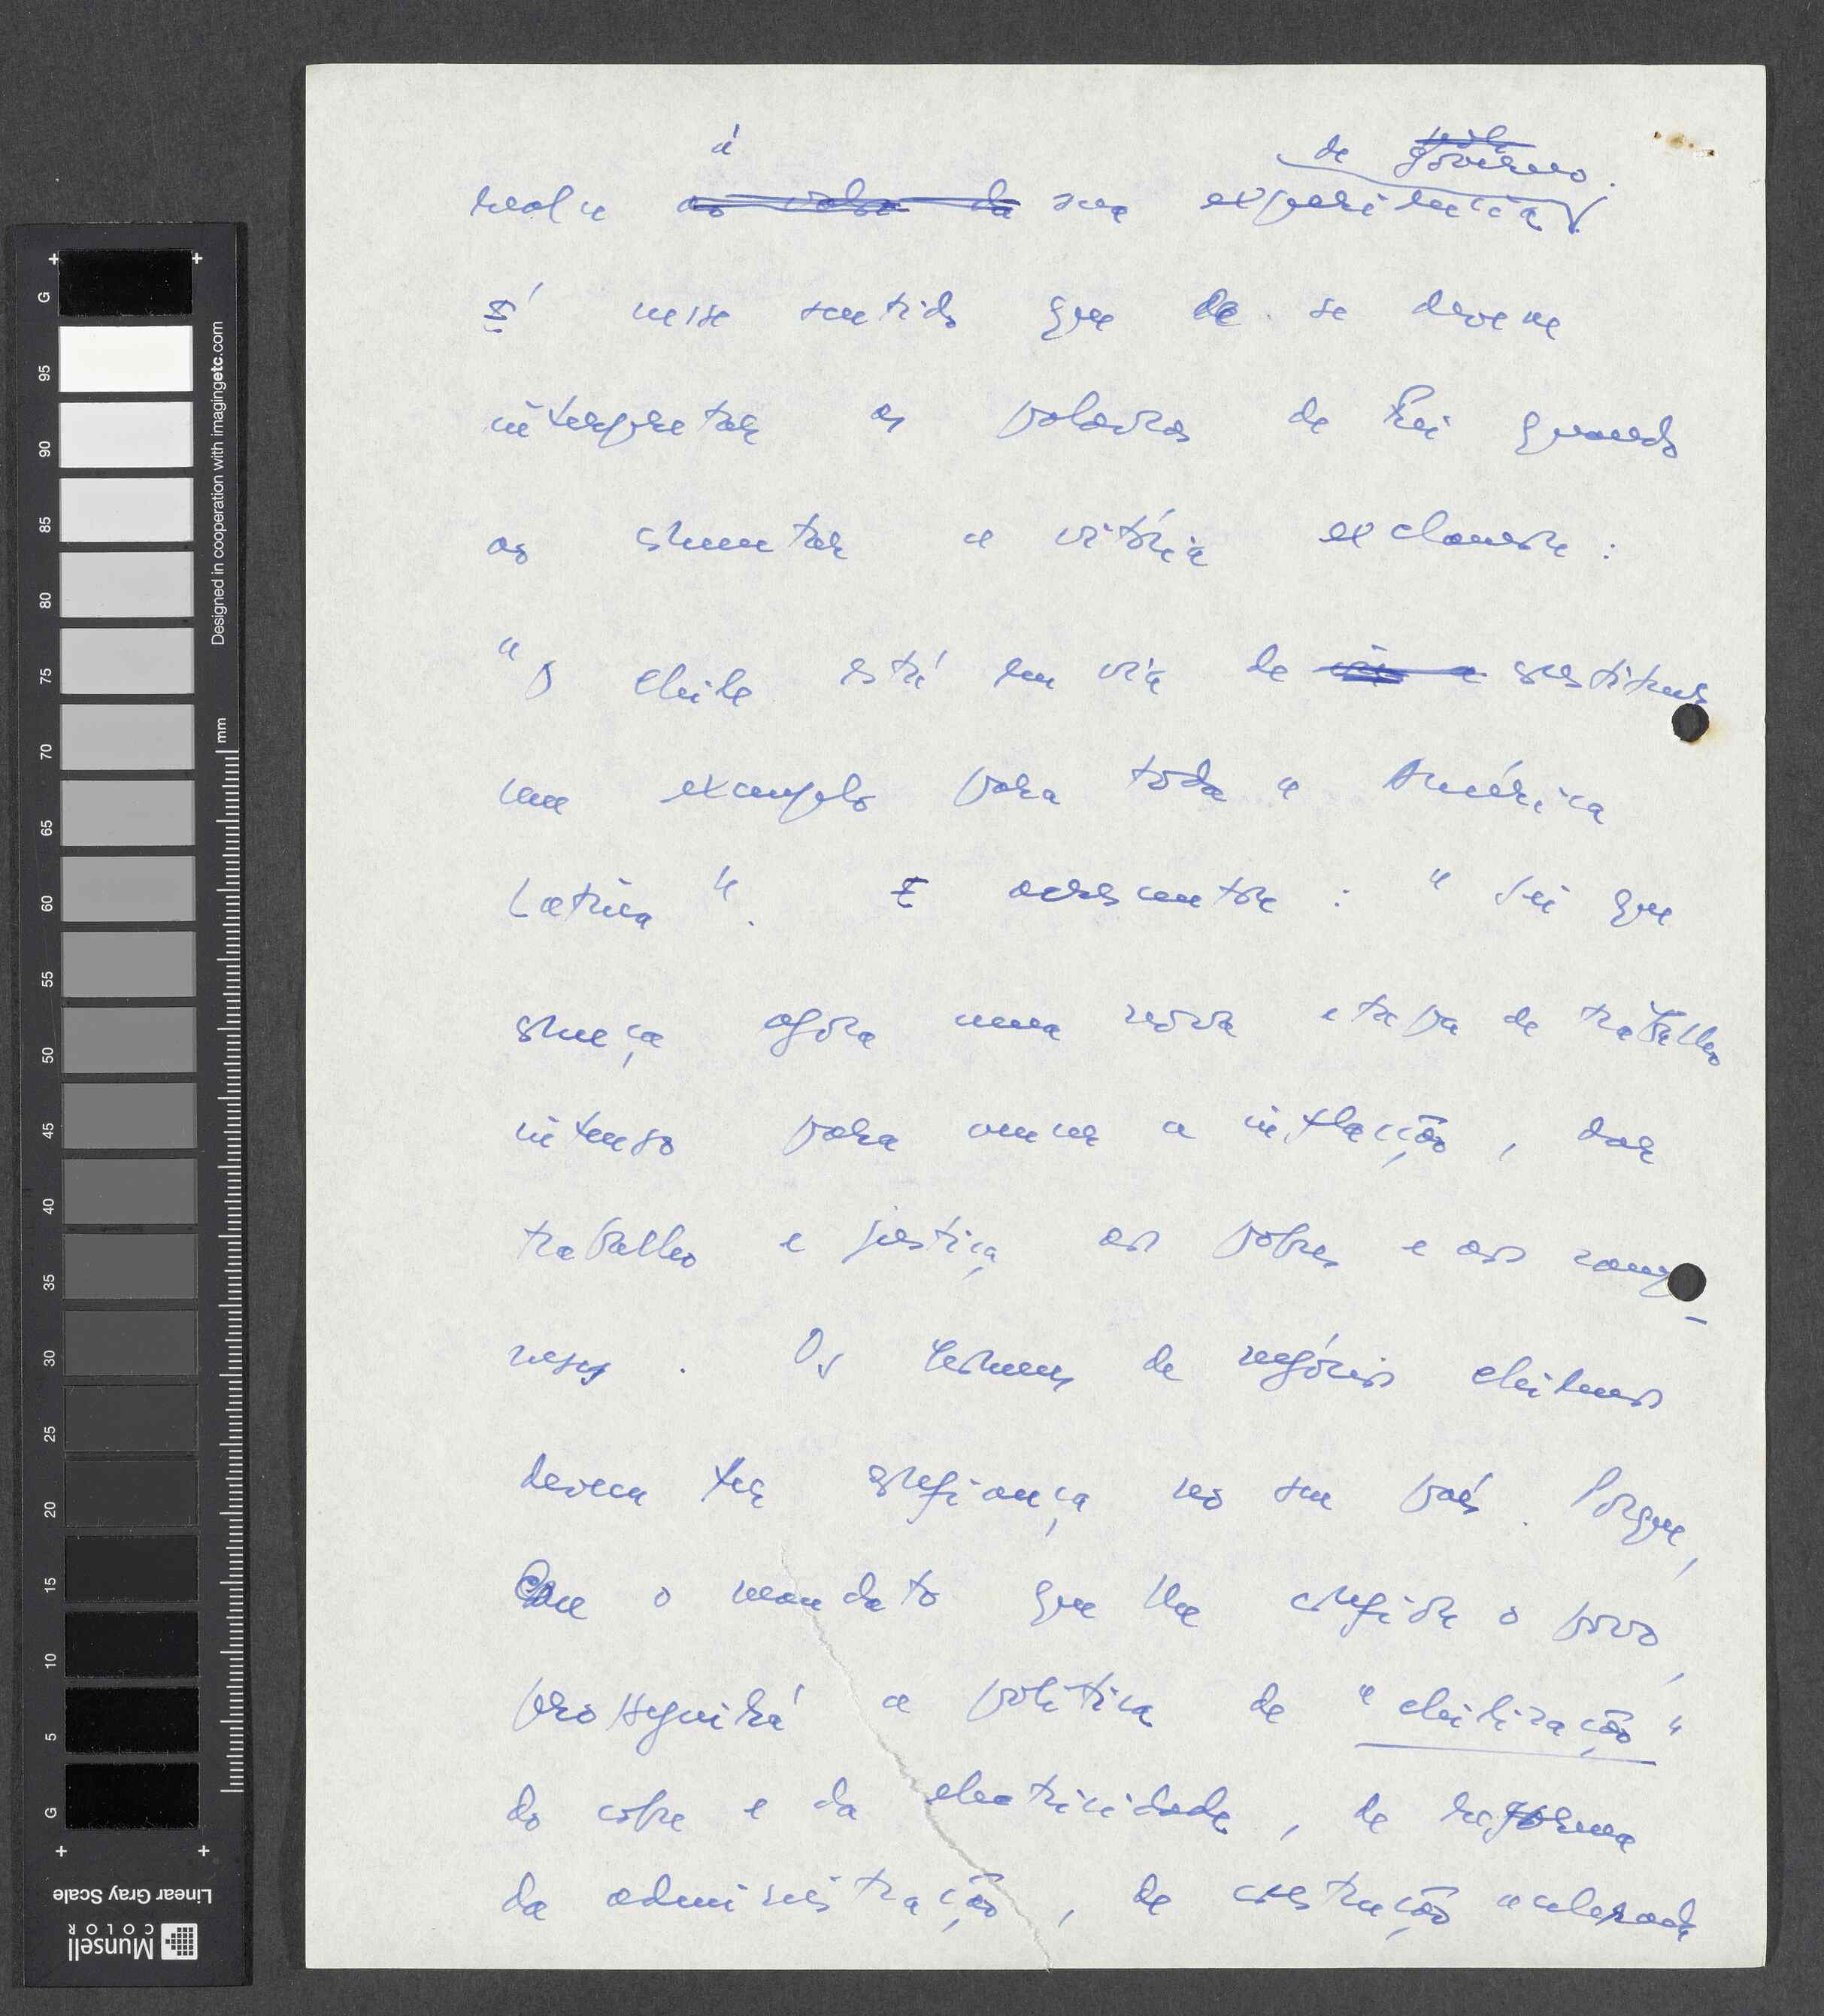 à
de governo.
realce ao valor da sua experiência
É nesse sentido que se devem
interpretar as palavras de Frei quando
ao comentar a vitória exclamou:
"O Chile está em via de constituir
um exemplo para toda a América
Latina". E acrescentou: "Sei que
começa agora uma nova etapa de trabalho
intenso para vencer a inflacção, dar
trabalho e justiça aos pobres e aos camp-
neses. Os homens de negócios chilenos
devem ter confiança no seu país. Porque,
com o mandato que lhe confiou o povo,
prosseguirá a política de "chilização"
do cobre e da electricidade, de reforma
da administração, de construção acelerada
Designed in cooperation with imagingetc.com
mm
G 95 90 85 80 75 70 65 60 55 50 45 40 35 30 25 20 15 10 5 G
Linear Gray Scale
Munsell
COLOR